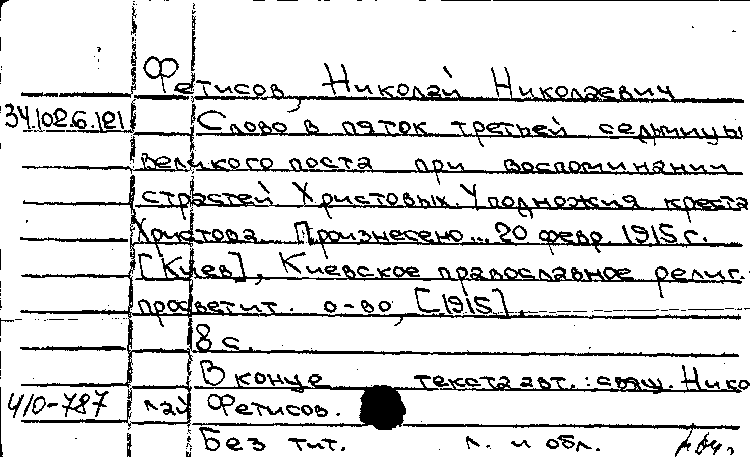 Фетисов, Николай Николаевич
34.102.6.121 Слово в пяток третьей седмицы
великого поста при воспоминании
страстей Христовых. У подножия креста
Христова. Произнесено... 20 февр. 1915 г.
[Киев], Киевское православное религ.
просветит. о-во, [1915].
8 с.
В конце текста авт.: свящ. Нико
4/0-787 лай Фетисов.
Без тит. л. и обл.